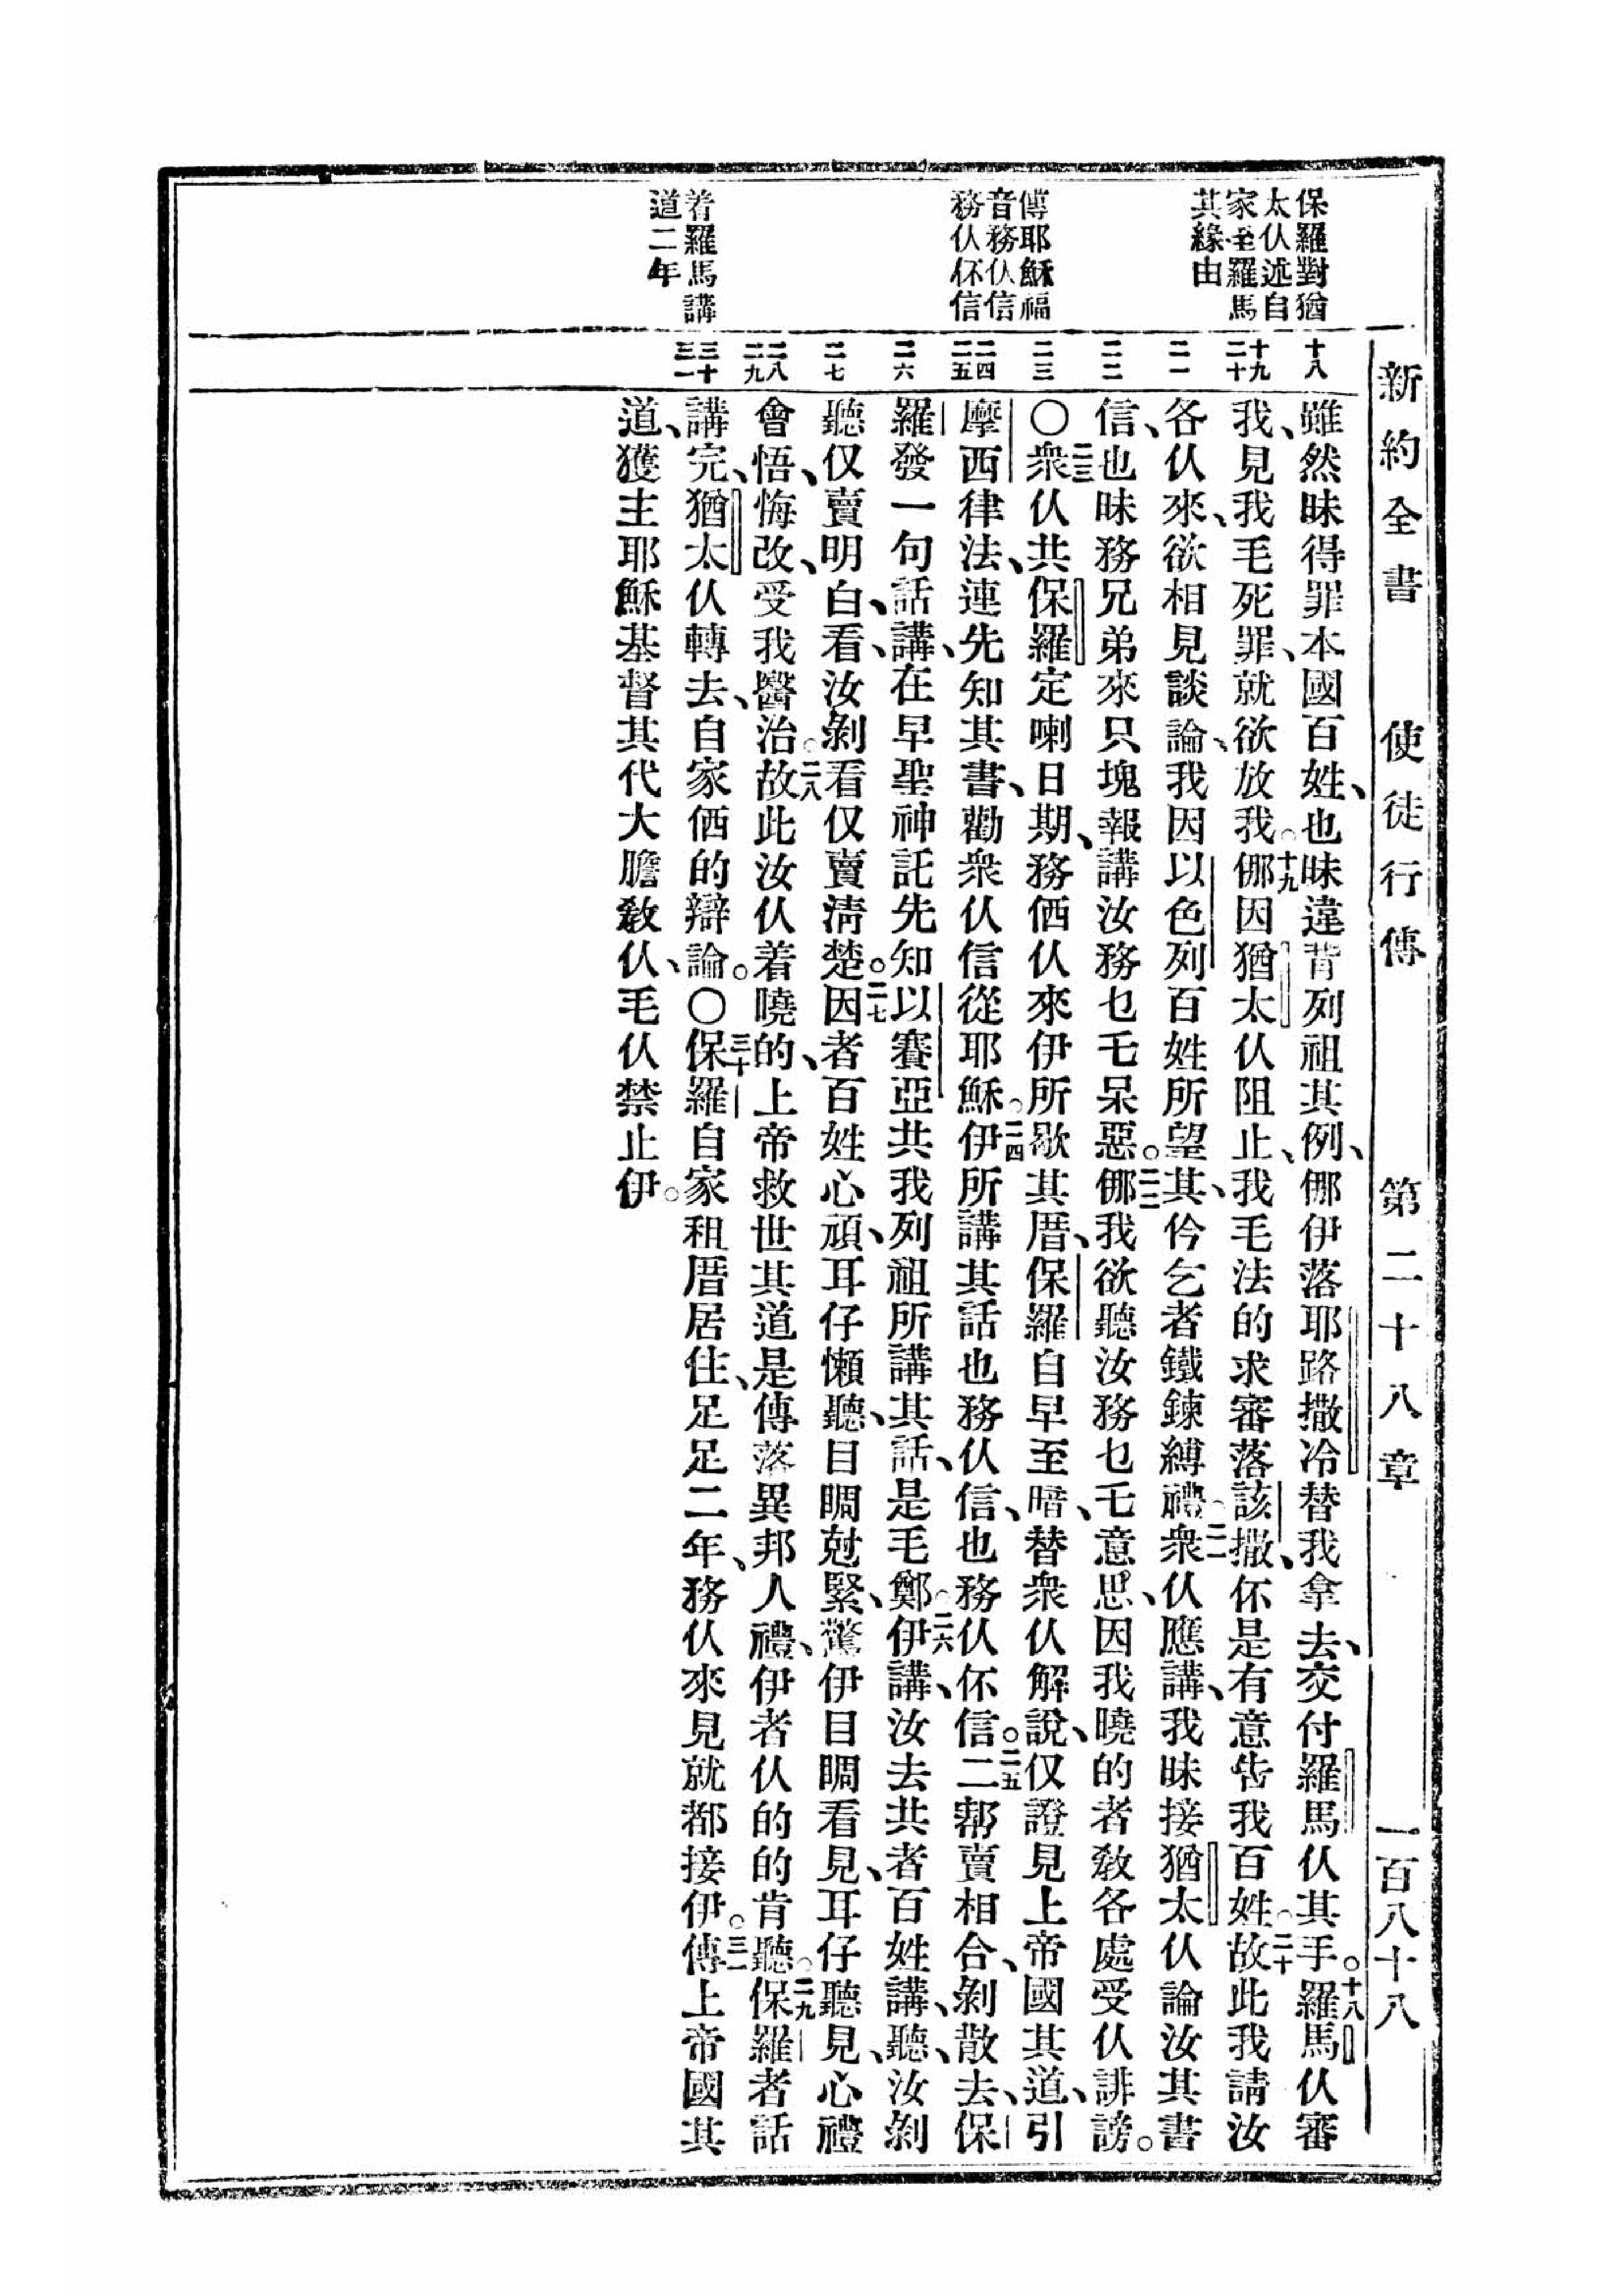 新約全書　使徒行傳　第二十八章　一百八十八
保羅對猶
太仈述自
家至羅馬
其緣由
傳耶穌福
音務仈信
務仈伓信
着羅馬講
道二年
十八
十九
二十
二一
二二
二三
二四
二五
二六
二七
二八
二九
三十
三一
雖然昧得罪本國百姓、也昧違背列祖其例、㑚伊落耶路撒冷替我拿去、交付羅馬仈其手。十八羅馬仈審
我、見我毛死罪、就欲放我。十九㑚因猶太仈阻止、我毛法的求審落該撒、伓是有意告我百姓。二十故此我請汝
各仈來、欲相見談論、我因以色列百姓所望其、仱乞者鐵鍊縛禮。二一衆仈應講、我昧接猶太仈論汝其書
信、也昧務兄弟來只塊報講汝務乜乇呆惡。二二㑚我欲聽汝務乜乇意思、因我曉的者教各處受仈誹謗。
〇二三衆仈共保羅定喇日期、務価仈來伊所歇其厝、保羅自早至暗、替衆仈解說、仅證見上帝國其道、引
摩西律法、連先知其書、勸衆仈信從耶穌。二四伊所講其話也務仈信、也務仈伓信。二五二帮賣相合、剝散去、保
羅發一句話講、在早聖神託先知以賽亞共我列祖所講其話、是毛鄭。二六伊講、汝去共者百姓講、聽、汝剝
聽仅賣明白、看、汝剝看仅賣清楚。二七因者百姓心頑、耳仔懶聽、目睭尅緊、驚伊目睭看見、耳仔聽見、心禮
會悟、悔改、受我醫治。二八故此汝仈着曉的、上帝救世其道、是傳落異邦人禮、伊者仈的的肯聽。二九保羅者話
講完、猶太仈轉去、自家価的辯論。〇三十保羅自家租厝居住、足足二年、務仈來見就都接伊。三一傳上帝國其
道、獲主耶穌基督其代大膽教仈、毛仈禁止伊。